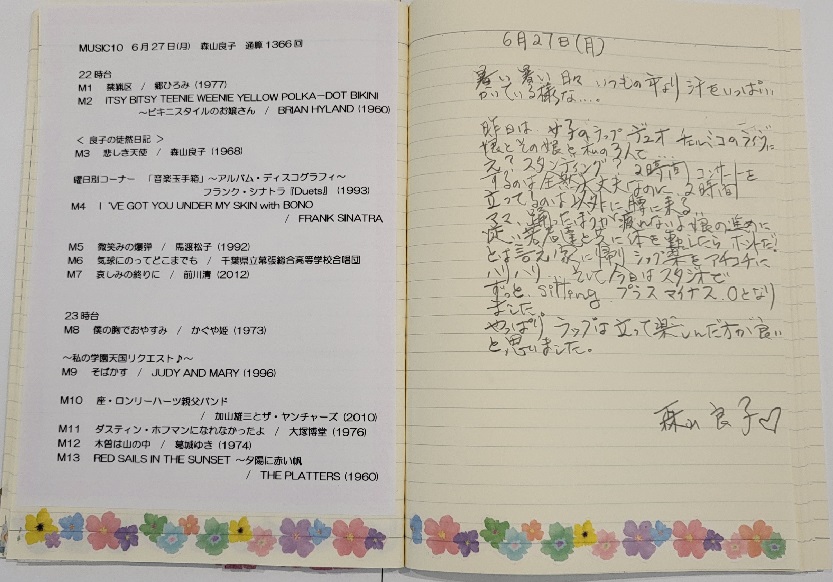 MUSIC10 6月27日(月) 森山良子 通算1366回
22時台
M1 禁猟区 / 郷ひろみ (1977)
M2 ITSY BITSY TEENIE WEENIE YELLOW POLKA-DOT BIKINI
~ビキニスタイルのお嬢さん / BRIAN HYLAND (1960)
< 良子の徒然日記 >
M3 悲しき天使 / 森山良子 (1968)
曜日別コーナー 「音楽玉手箱」~アルバム・ディスコグラフィ~
フランク・シナトラ『Duets』 (1993)
M4 I 'VE GOT YOU UNDER MY SKIN with BONO
/ FRANK SINATRA
M5 微笑みの爆弾 / 馬渡松子 (1992)
M6 気球にのってどこまでも / 千葉県立幕張総合高等学校合唱団
M7 哀しみの終りに / 前川清 (2012)
23時台
M8 僕の胸でおやすみ / かぐや姫 (1973)
~私の学園天国リクエスト♪~
M9 そばかす / JUDY AND MARY (1996)
M10 座・ロンリーハーツ親父バンド
/ 加山雄三とザ・ヤンチャーズ (2010)
M11 ダスティン・ホフマンになれなかったよ / 大塚博堂 (1976)
M12 木曽は山の中 / 葛城ゆき (1974)
M13 RED SAILS IN THE SUNSET ~夕陽に赤い帆
/ THE PLATTERS (1960)
6月27日(月)
暑い 暑い 日々 いつもの年より 汗をいっぱい
かいている様な....
昨日は 女子のラップ デュオ チェルミコのライブに
娘とその娘と私の3人で
え?スタンディング? 2時間 コンサートを
するのは全然大丈夫なのに 2時間
立ってるのは以外に腰に来る
ママ、踊ったほうが疲れないよ 娘の進めに
従い若者達と共に体を動したら ホントだ!
とは言え 家に帰り シップ薬をアチコチに
ハリハリ そして今日はスタジオで
ずっと sitting プラス マイナス 0となり
ました。
やっぱり ラップは立って楽しんだ方が良い
と思いました。
森山良子♡